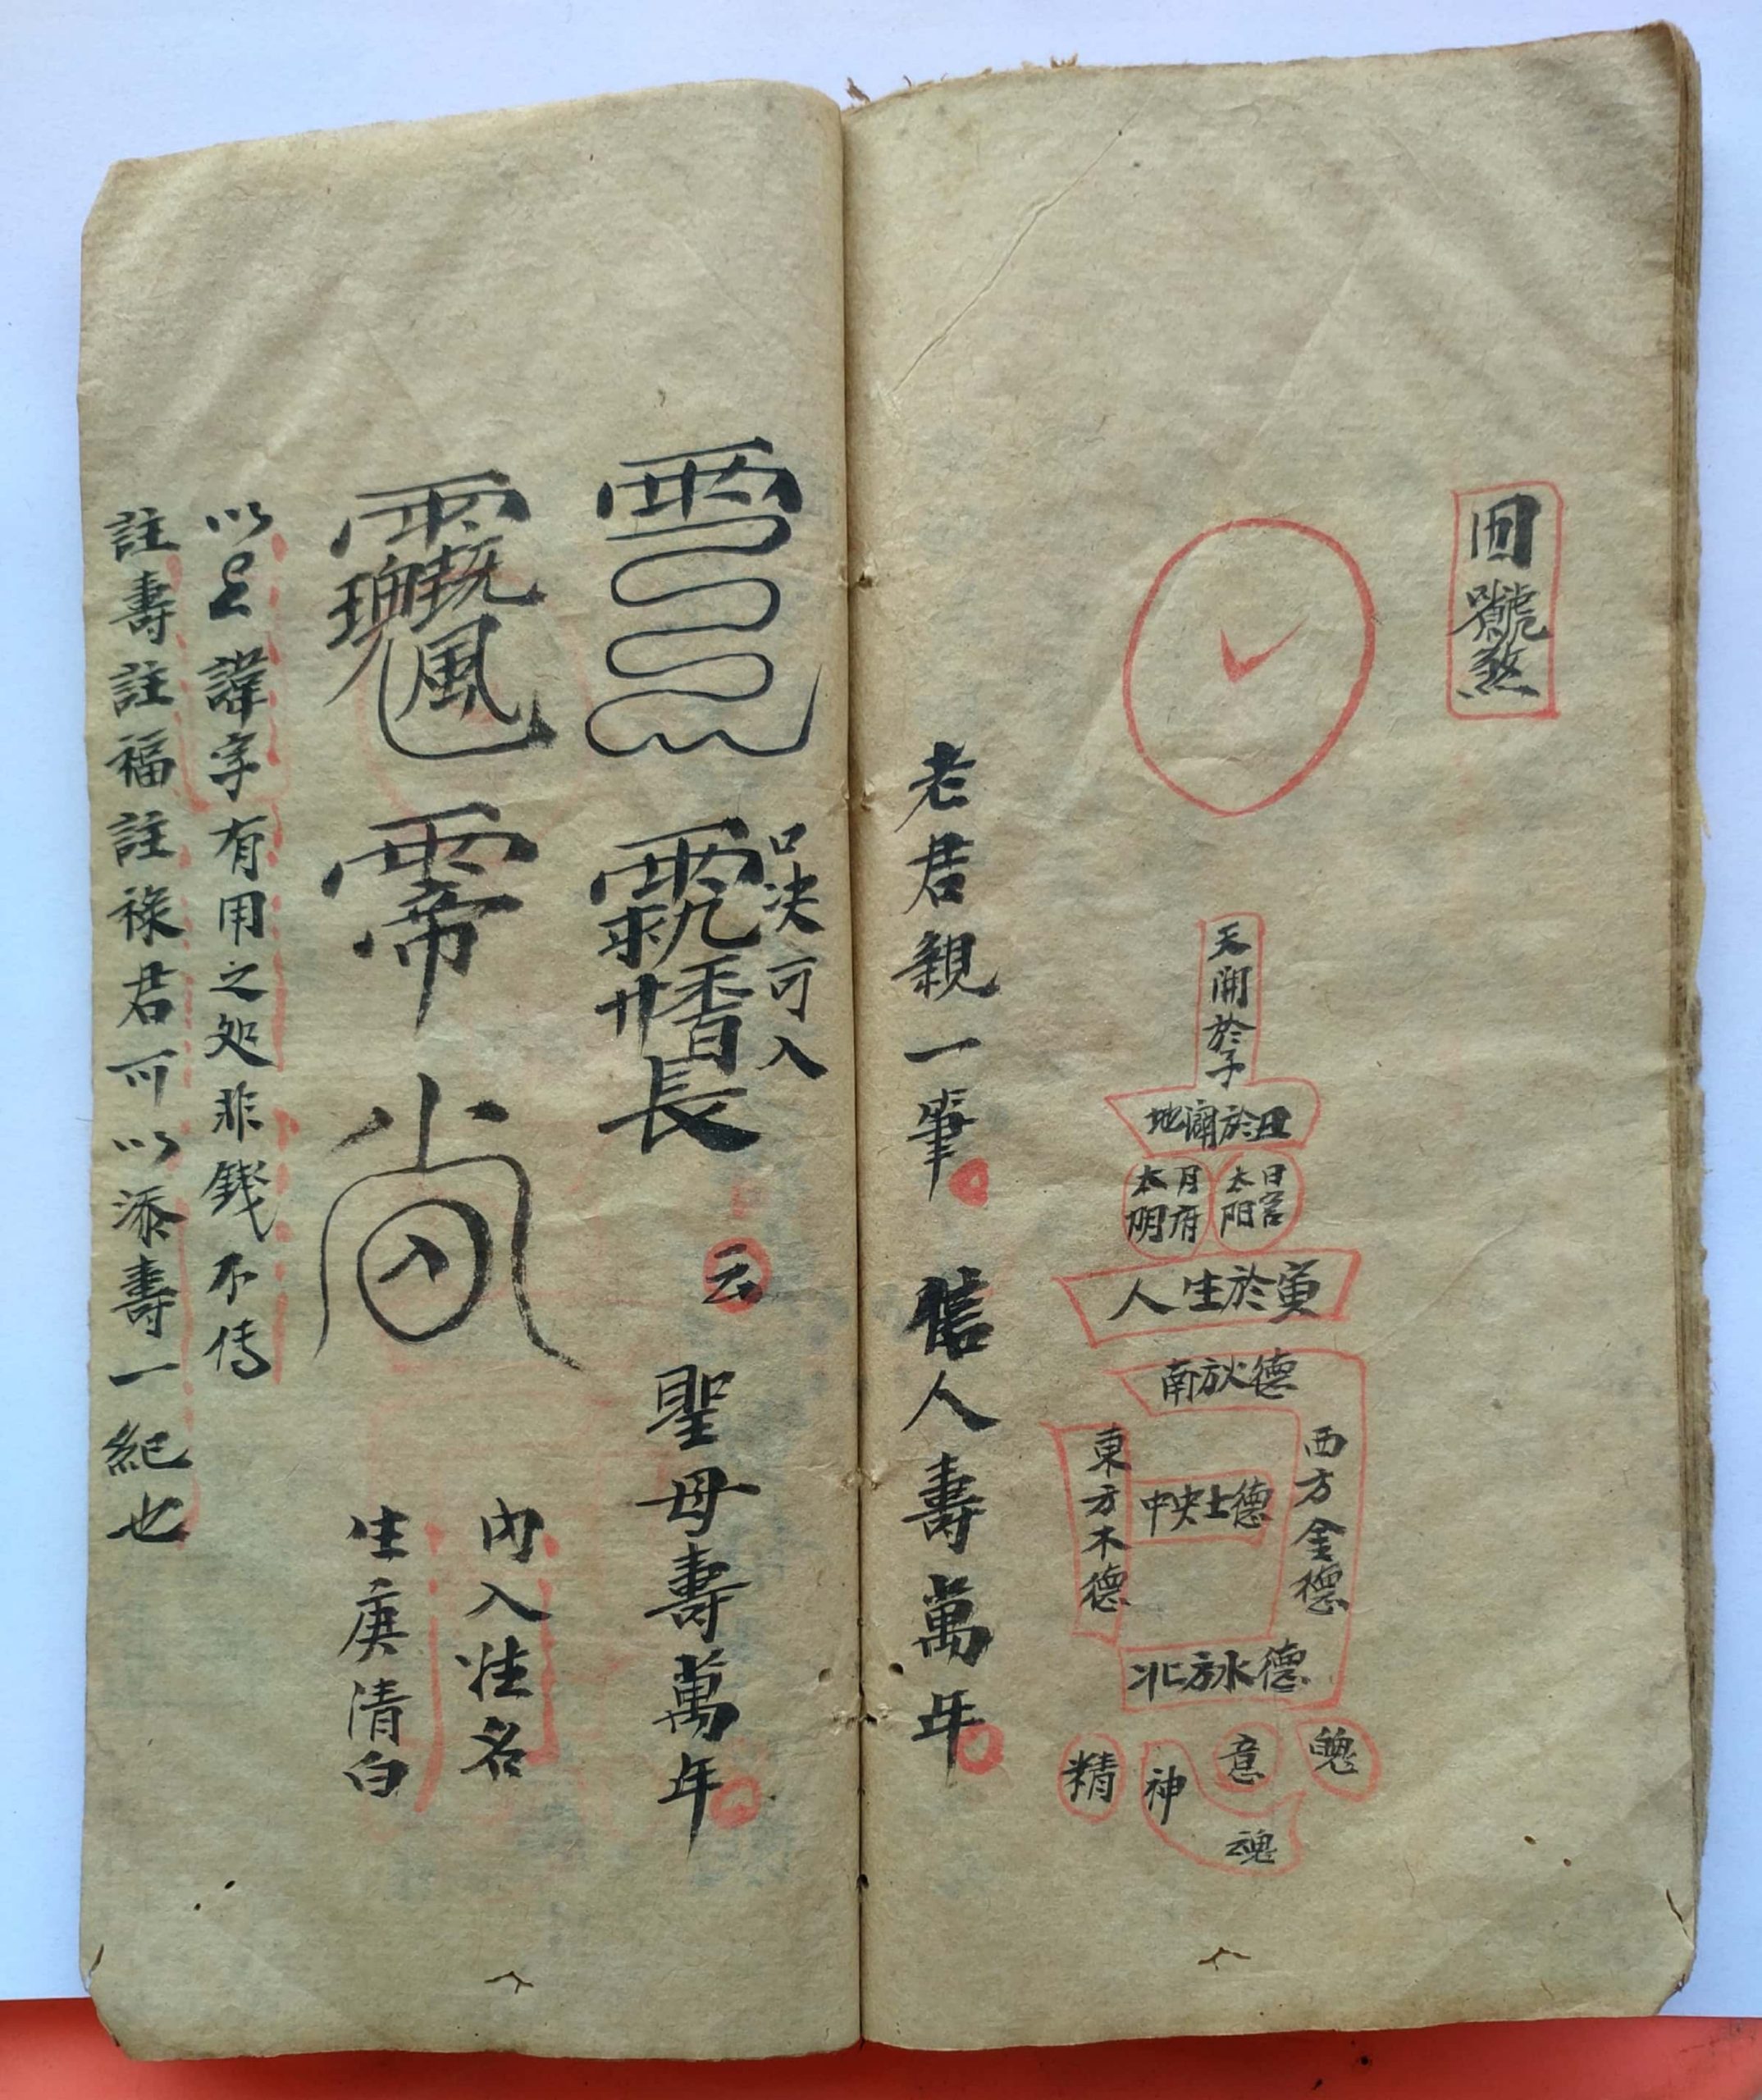 天開於子
地闢於丑
日宮太阳
月府太阴
人生於寅
南方火德
西方金德
中央土德
東方木德
北方水德
魄
意
神
精
魂
老君親一筆
信人壽萬年
口決可入
長
云
聖母壽萬年
內入姓名
生庚清白
以上諱字有用之処非錢不传
註壽註福註祿君可以添壽一紀也